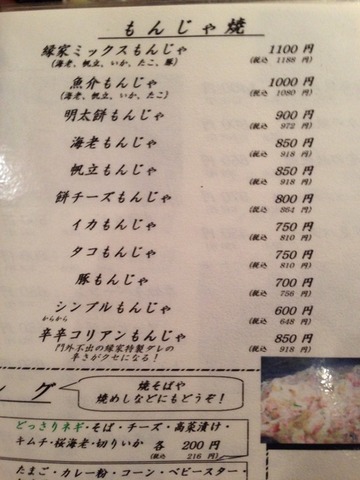 もんじゃ焼
縁家ミックスもんじゃ 1100 円
(海老、帆立、いか、たこ、豚) (税込 1188 円)
魚介もんじゃ 1000 円
(海老、帆立、いか、たこ) (税込 1080 円)
明太餅もんじゃ 900 円
(税込 972 円)
海老もんじゃ 850 円
(税込 918 円)
帆立もんじゃ 850 円
(税込 918 円)
餅チーズもんじゃ 800 円
(税込 864 円)
イカもんじゃ 750 円
(税込 810 円)
タコもんじゃ 750 円
(税込 810 円)
豚もんじゃ 700 円
(税込 756 円)
シンプルもんじゃ 600 円
(税込 648 円)
からから
辛辛コリアンもんじゃ 850 円
門外不出の縁家特製ダレの (税込 918 円)
辛さがクセになる！
ング
焼そばや
焼めしなどにもどうぞ！
どっさりネギ・そば・チーズ・高菜漬け・
キムチ・桜海老・切りいか 各 200 円
(税込 216 円)
たまご・カレー粉・コーン・ベビースター・